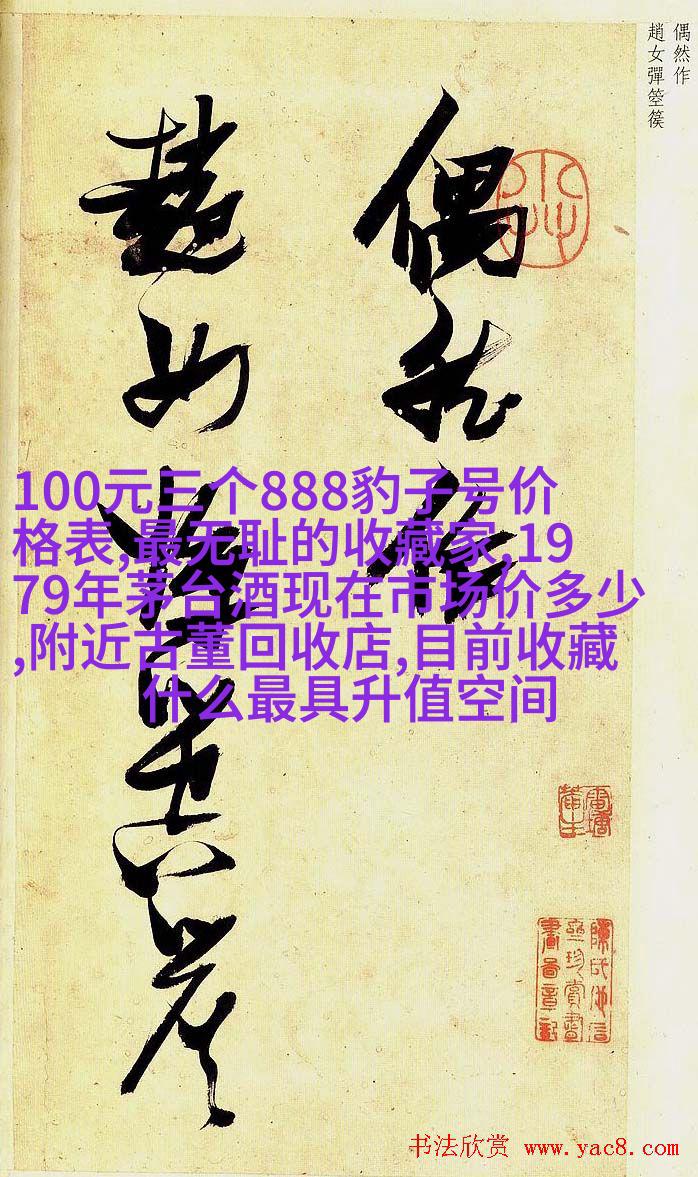 偶然作
趙女彈箜篌
偶然作
趙女彈箜篌
100元三个888豹子号价
格表,最无耻的收藏家,19
79年茅台酒现在市场价多少
,附近古董回收店,目前收藏
什么最具升值空间
书法欣赏 www.yac8.com